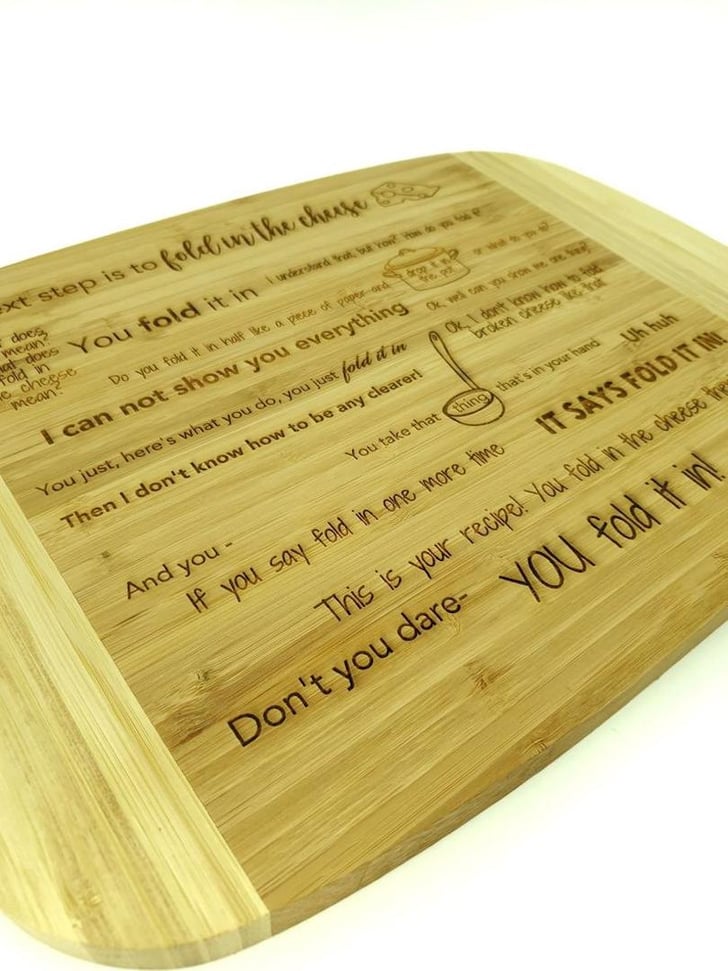 ext step is to fold in the cheese
does mean?
at does
fold in
e cheese
mean?
You fold it in
I understand that, but how? How do you fold it?
Do you fold it in half like a piece of paper and drop it in the pot or what do you do?
I can not show you everything
Ok, well can you show me one thing?
You just, here's what you do, you just fold it in
Ok, I don't know how to fold broken cheese like that
Then I don't know how to be any clearer!
You take that thing that's in your hand
Uh huh
And you -
If you say fold in one more time
IT SAYS FOLD IT IN!
This is your recipe! You fold in the cheese
Don't you dare-
YOU fold it in!